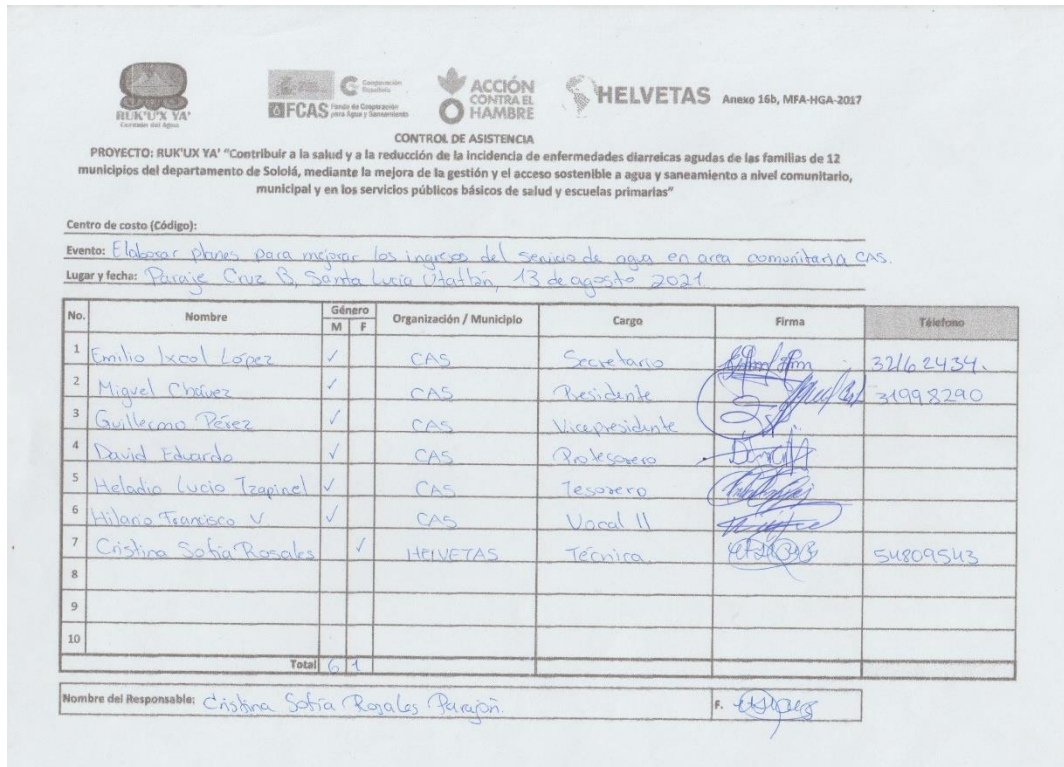 RUK'U'X YA'
Corazón del Agua
Cooperación Española
FCAS Fondo de Cooperación para Agua y Saneamiento
ACCIÓN CONTRA EL HAMBRE
HELVETAS Anexo 16b, MFA-HGA-2017
CONTROL DE ASISTENCIA
PROYECTO: RUK'UX YA' "Contribuir a la salud y a la reducción de la incidencia de enfermedades diarreicas agudas de las familias de 12
municipios del departamento de Sololá, mediante la mejora de la gestión y el acceso sostenible a agua y saneamiento a nivel comunitario,
municipal y en los servicios públicos básicos de salud y escuelas primarias"
Centro de costo (Código):
Evento: Elaborar planes para mejorar los ingresos del servicio de agua en area comunitaria CAS.
Lugar y fecha: Paraje Cruz B, Santa Lucía Utatlán, 13 de agosto 2021
No. Nombre Género M F Organización / Municipio Cargo Firma Télefono
1 Emilio Ixcol López ✓ CAS Secretario 32162434.
2 Miguel Chávez ✓ CAS Presidente 31998290
3 Guillermo Pérez ✓ CAS Vicepresidente
4 David Eduardo ✓ CAS Protesorero
5 Heladio Lucio Tzapinel ✓ CAS Tesorero
6 Hilario Francisco V ✓ CAS Vocal II
7 Cristina Sofía Rosales ✓ HELVETAS Técnica 54809543
8
9
10
Total 6 1
Nombre del Responsable: Cristina Sofía Rosales Parajón. F.